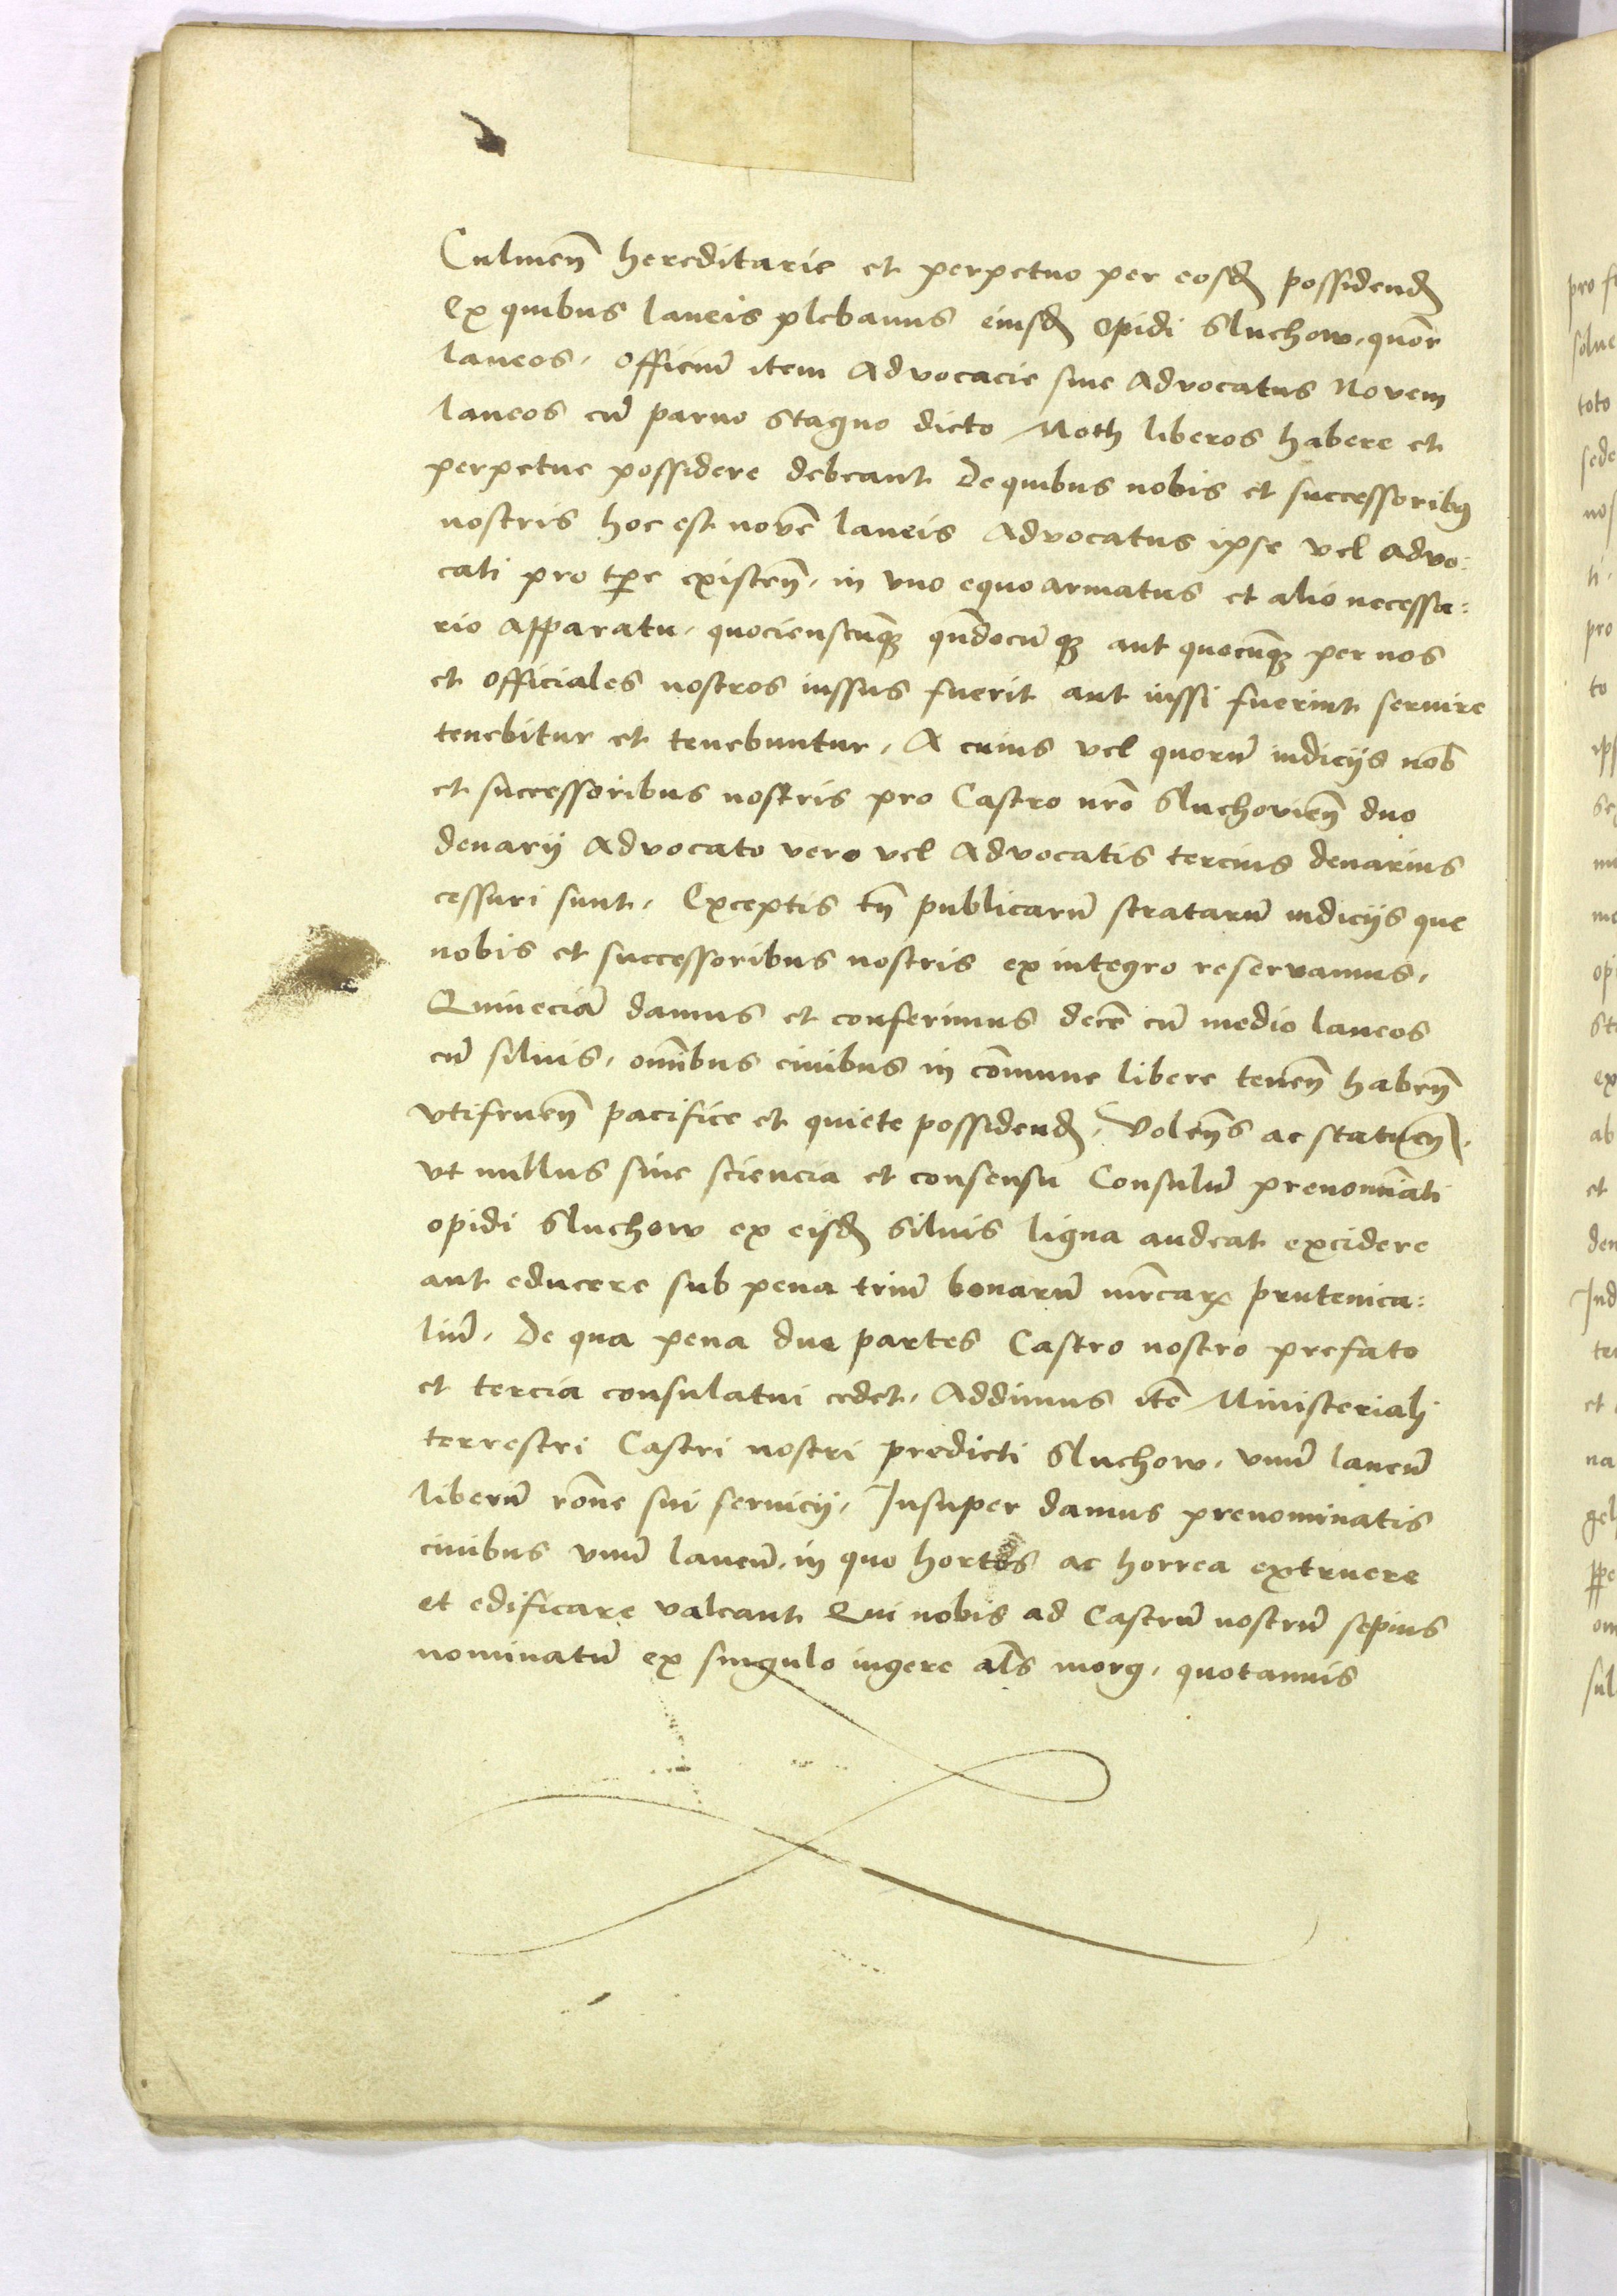 Culmen̄ hereditarie et perpetuo per eosd̄ possidend̄
Ex quibus laneis plebanus eiusd̄ opidi Sluchow, quor̄
laneos, officiū item Advocacie siue Advocatus Novem
laneos cū paruo stagno dicto Moth liberos habere et
perpetue possidere debeant De quibus nobis et successoribꝰ
nostris hoc est novē laneis Advocatus ipse vel advo:
cati pro tꝑe existen̄, in vno equo armatus et alio necessa:
rio apparatu, quocienscūqꝫ qn̄docūqꝫ aut quocūqꝫ per nos
et officiales nostros iussus fuerit aut iussi fuerint seruire
tenebitur et tenebuntur, A cuius vel quorū iudicijs nob̄
et successoribus nostris pro Castro nr̄o Sluchovien̄ duo
denarij Advocato vero vel Advocatis tercius denarius
cessuri sunt, Exceptis tn̄ publicarū stratarū iudicijs que
nobis et successoribus nostris ex integro reservamus,
Quineciā damus et conferimus decē cū medio laneos
cū siluis, om̄ibus ciuibus in cōmune libere tenen̄ haben̄
vtifruen̄ pacifice et quiete possidend̄, Volen̄s ac statuen̄,
vt nullus sine sciencia et consensu Consulū prenomīati
opidi Sluchow ex eisd̄ siluis ligna audeat excidere
aut educere sub pena triū bonarū mr̄carꝝ prutenica:
liū, De qua pena due partes Castro nostro prefato
et tercia consulatui cedet, Addimus itē Ministeriali
terrestri Castri nostri predicti Sluchow, vnū laneū
liberū rōne sui seruicij, Insuper damus prenominatis
ciuibus vnū laneū, in quo hortos ac horrea extruere
et edificare valeant Qui nobis ad Castrū nostrū sepius
nominatū ex singulo iugere al̄s morg, quotannis